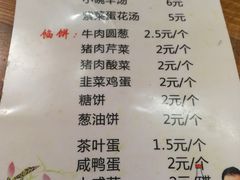 小碗羊汤 6元
紫菜蛋花汤 5元
馅饼: 牛肉圆葱 2.5元/个
猪肉芹菜 2元/个
猪肉酸菜 2元/个
韭菜鸡蛋 2元/个
糖饼 2元/个
葱油饼 2元/个
茶叶蛋 1.5元/个
咸鸭蛋 2元/个